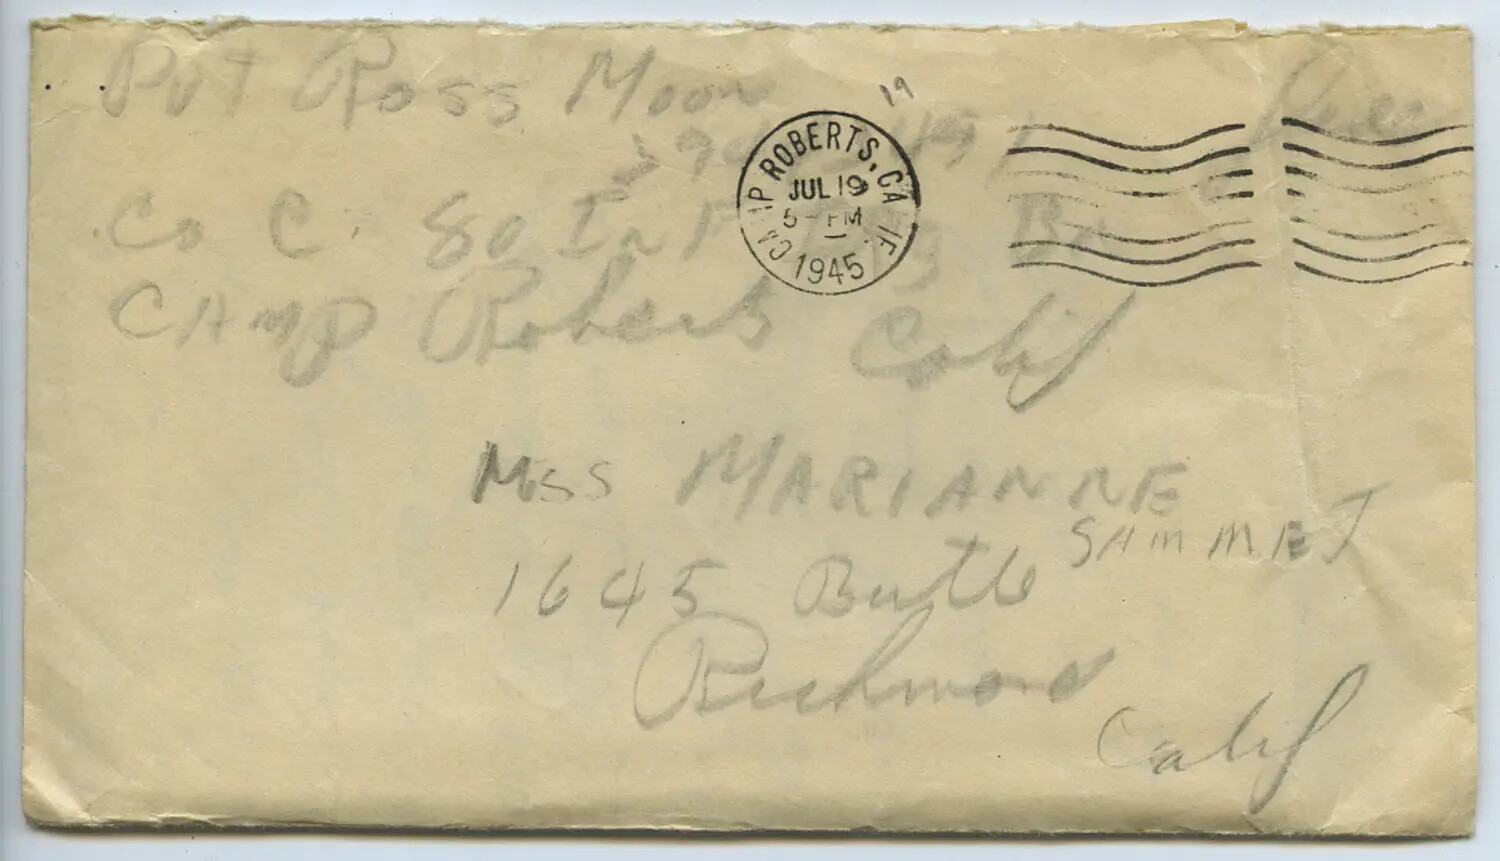 Pvt Ross Moon
19
Free
Co C. 80 Inf Bn
CAMP Roberts Calif
CAMP ROBERTS, CALIF.
JUL 19
5 - PM
1945
Miss MARIANNE
SAMMET
1645 Butte
Richmond
Calif